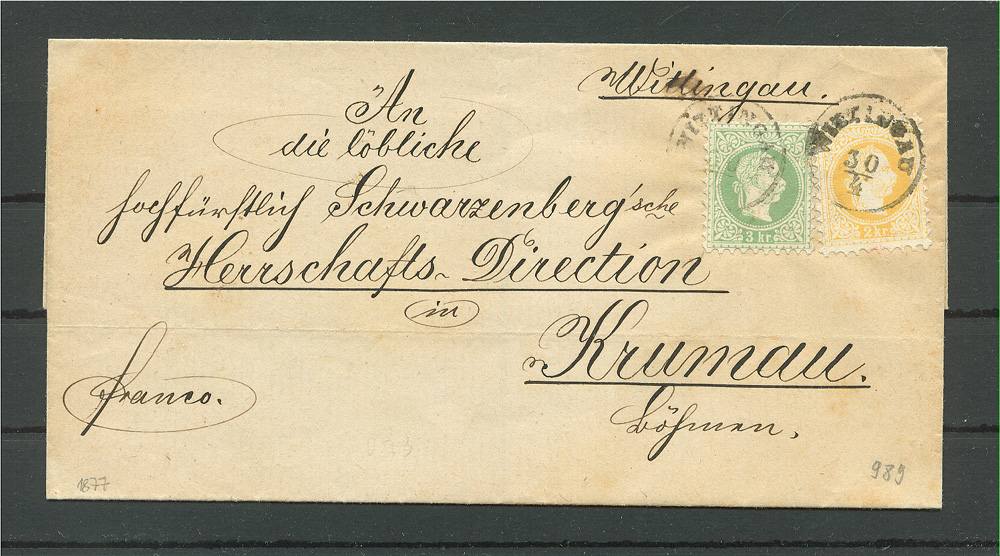 Wittingau.
An
die löbliche
hochfürstlich Schwarzenberg'sche
Herrschafts-Direction
in
Krumau.
Böhmen.
franco.
WITTINGAU
WITTINGAU
30
4
3 kr.
2 kr.
1877
989